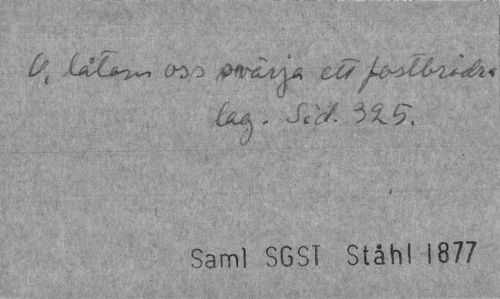 O, låtom oss svärja ett fostbrödra
lag. Sid. 325.
Saml SGST Ståhl 1877